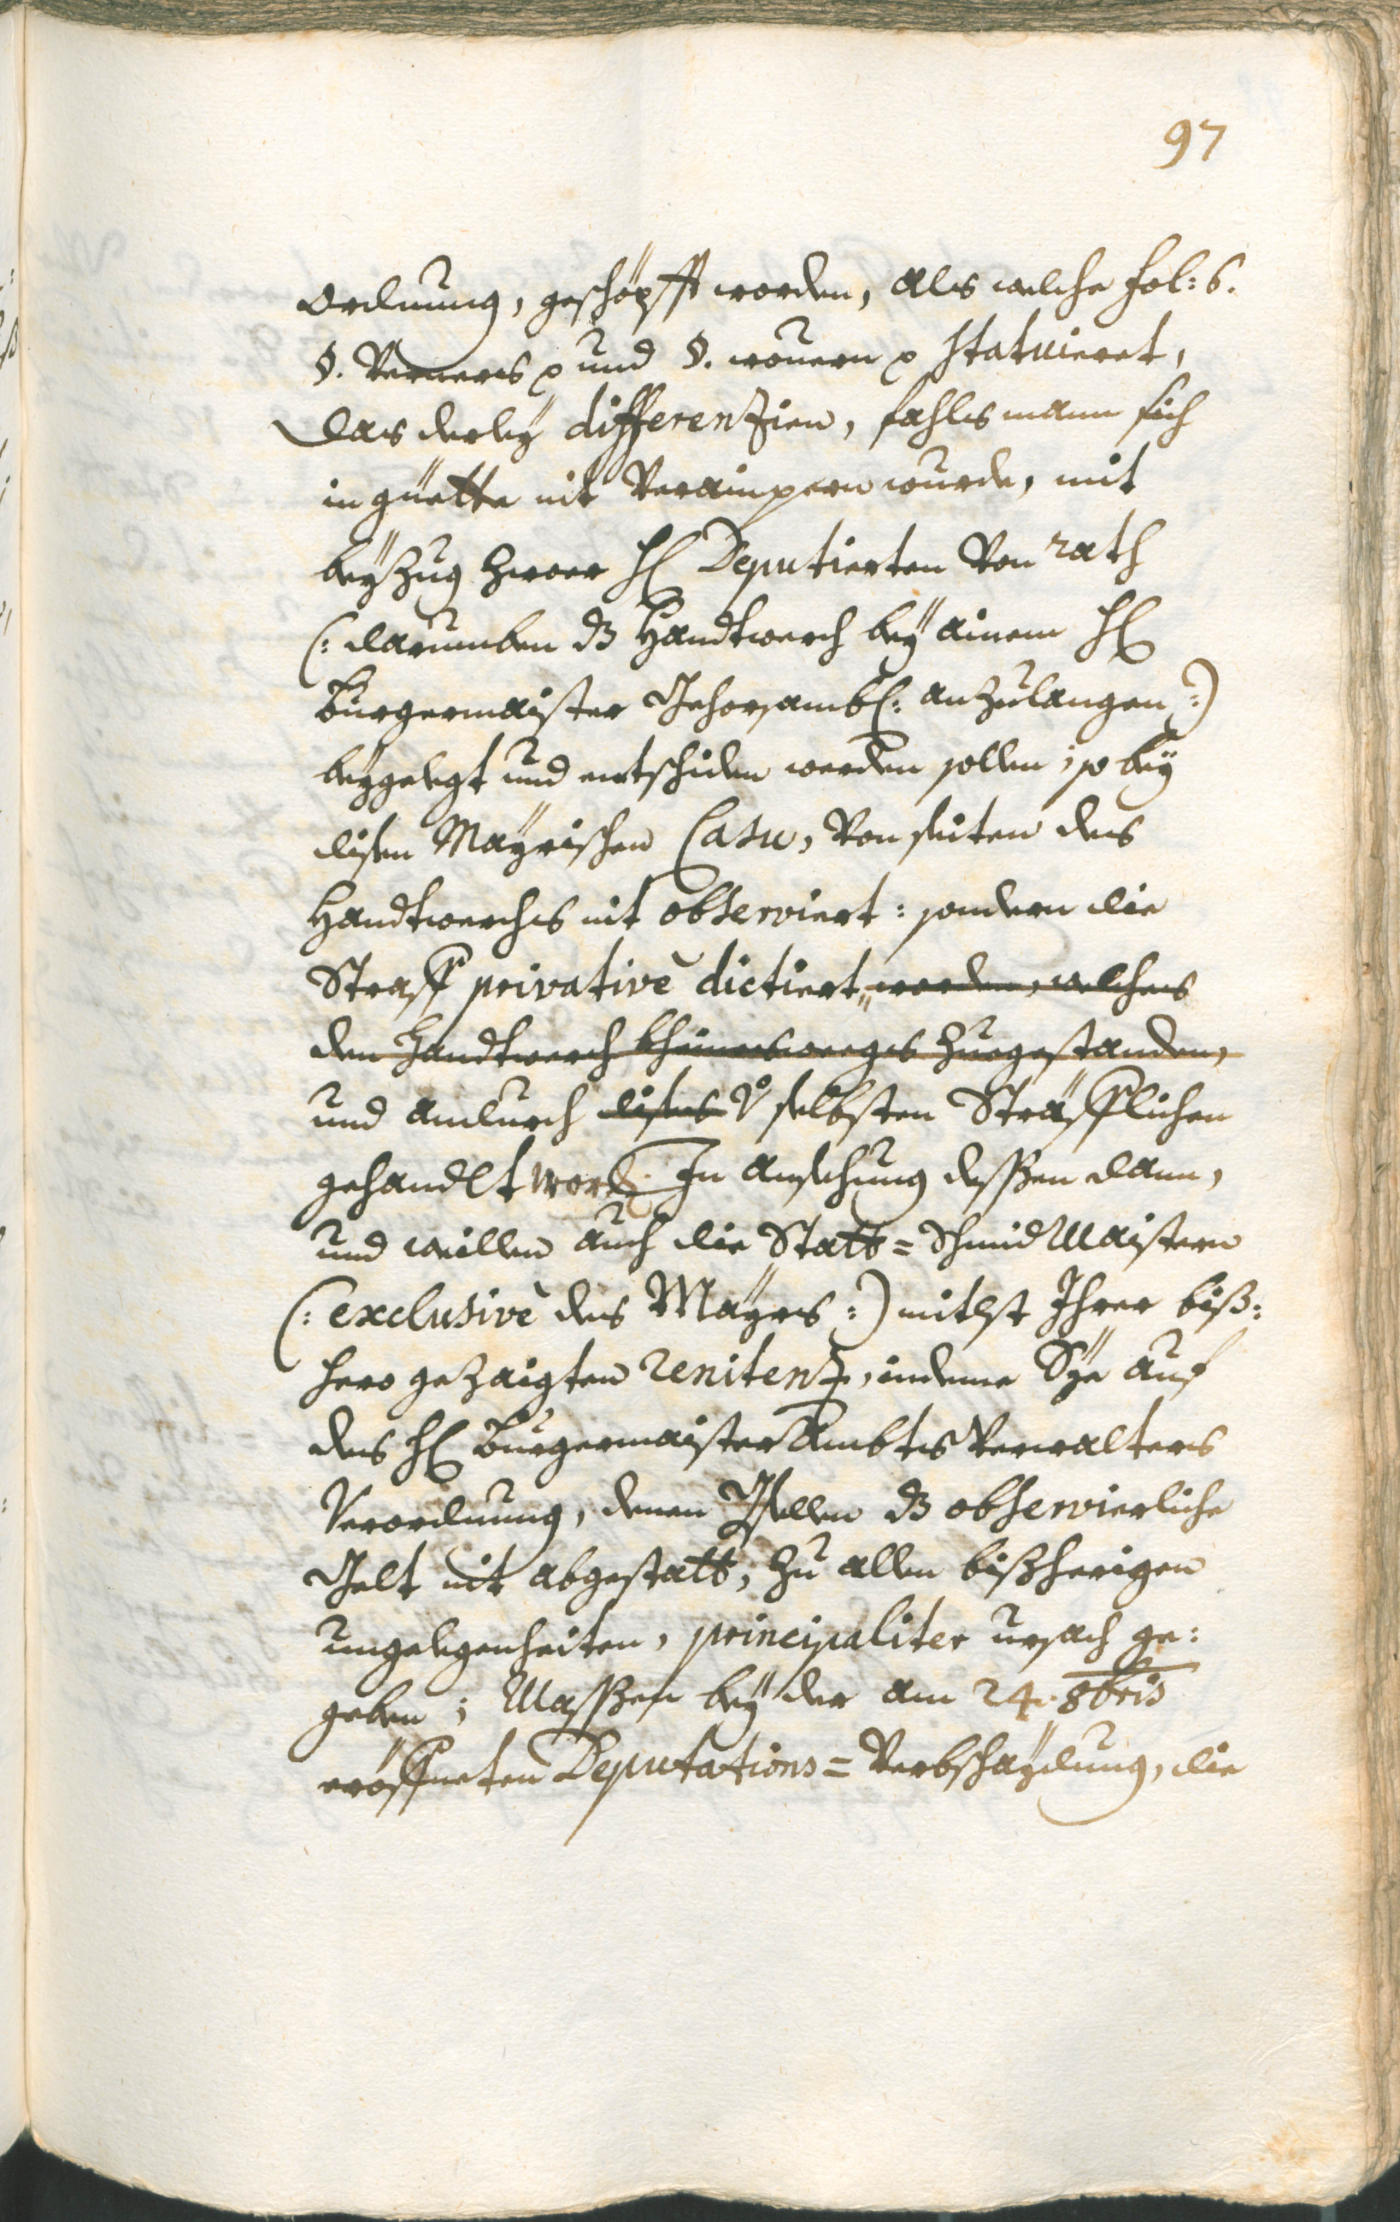 97
Ordnung, geschöpfft worden, als welche fol: 6.
§. Verners p und §. wouern p statuieret,
das derleÿ differenzien, fahls mann sich
in güette nit Verainparn wurde, mit
beÿzug zwoer H Deputierten Von rath
(: darumben dz Handtwerch beÿ ainem H
Burgermaister Gehorsambl: anzulangen :)
beÿgelegt und entschiden werden sollen; so beÿ
disen Maÿrischen Casu, Von seiten des
Handtwerchs nit observiert: sondern die
Straff privativè dictiert, worden, welches
den Handtwerch kheineswegs zuegestanden,
und andurch dises selbsten Sträfflichen
gehandlt word. In ansehung dessen dann,
und weillen auch die Statt=Schmid Maistern
(: exclusivè des Maÿrs :) mitlst Ihrer biß:
hero gezaigten renitenz, indeme Sÿe auf
des H Burgermaister Ambts Verwalters
Verordnung, denen Gsellen dz observierliche
Gelt nit abgestatt, zu allen bißherigen
ungelegenheiten, principaliter ursach ge:
geben; Massen beÿ der am 24. 8bris
eröffneten Deputations=Verbschaÿdung, die